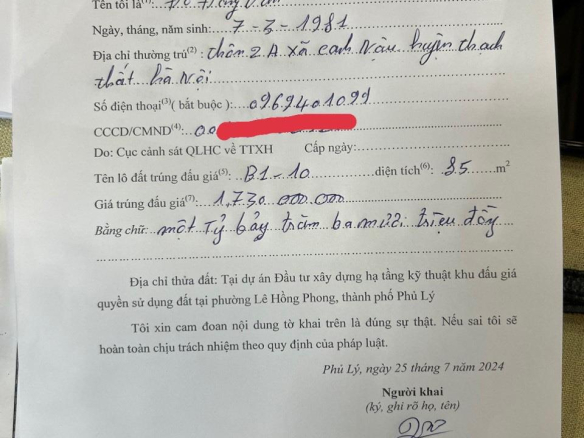 Tên tôi là(1):
Ngày, tháng, năm sinh: 7-3-1981
Địa chỉ thường trú(2): thôn 2A xã canh Nậu huyện thạch
thất hà Nội
Số điện thoại(3)( bắt buộc ): 0969401099
CCCD/CMND(4): 00
Do: Cục cảnh sát QLHC về TTXH Cấp ngày:
Tên lô đất trúng đấu giá(5): B1-10 diện tích(6): 85 m2
Giá trúng đấu giá(7): 1,730 000.000
Bằng chữ: một Tỷ bảy trăm ba mươi triệu đồng
Địa chỉ thửa đất: Tại dự án Đầu tư xây dựng hạ tầng kỹ thuật khu đấu giá
quyền sử dụng đất tại phường Lê Hồng Phong, thành phố Phủ Lý
Tôi xin cam đoan nội dung tờ khai trên là đúng sự thật. Nếu sai tôi sẽ
hoàn toàn chịu trách nhiệm theo quy định của pháp luật.
Phủ Lý, ngày 25 tháng 7 năm 2024
Người khai
(ký, ghi rõ họ, tên)